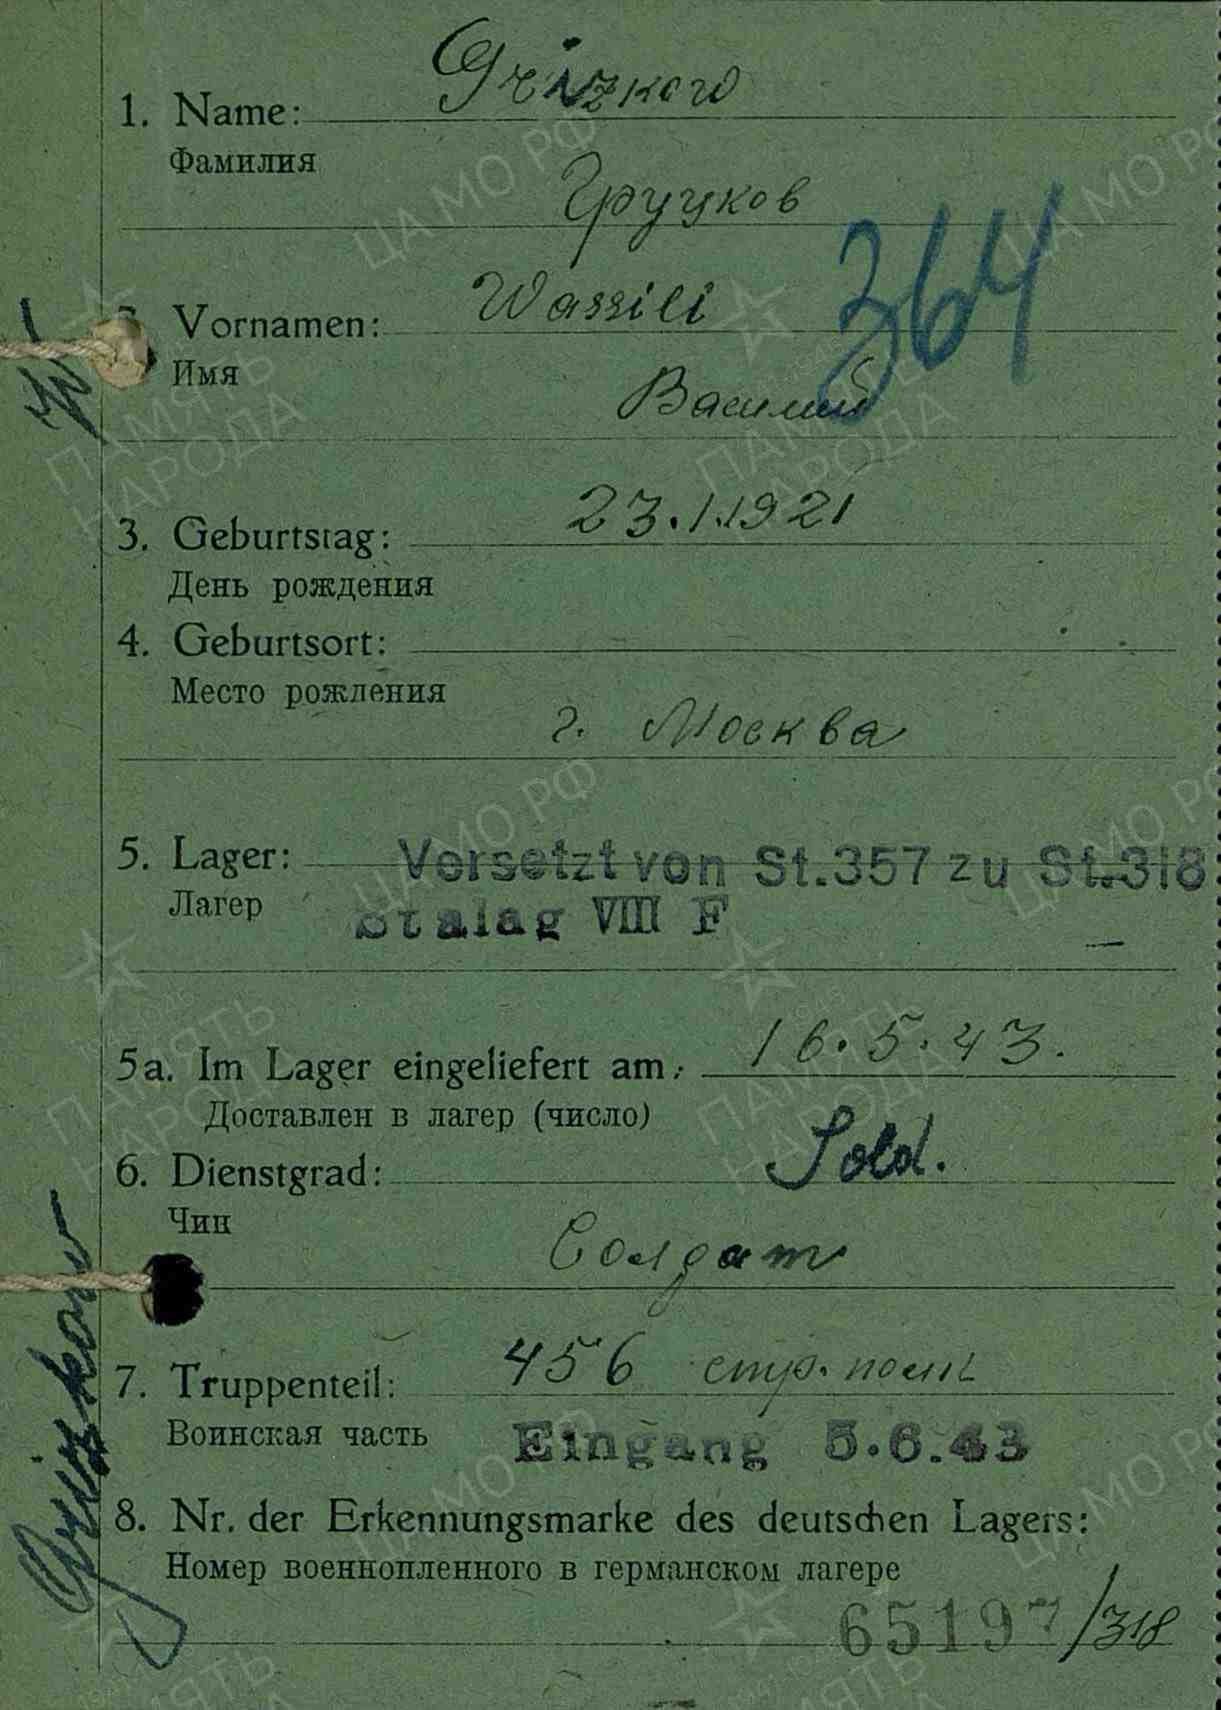 1. Name: Grizkow
Фамилия
Груцков
2. Vornamen: Wassili
364
Имя
Василий
3. Geburtstag: 23.1.1921
День рождения
4. Geburtsort:
Место рождения
г. Москва
5. Lager: Versetzt von St.357 zu St.318
Лагер
Stalag VIII F
5a. Im Lager eingeliefert am: 16.5.43.
Доставлен в лагер (число)
6. Dienstgrad: Sold.
Чин
Солдат
7. Truppenteil: 456 стр. полк
Воинская часть
Eingang 5.6.43
8. Nr. der Erkennungsmarke des deutschen Lagers:
Номер военнопленного в германском лагере
65197/318
Grizkow W
ЦА МО РФ
ПАМЯТЬ
НАРОДА